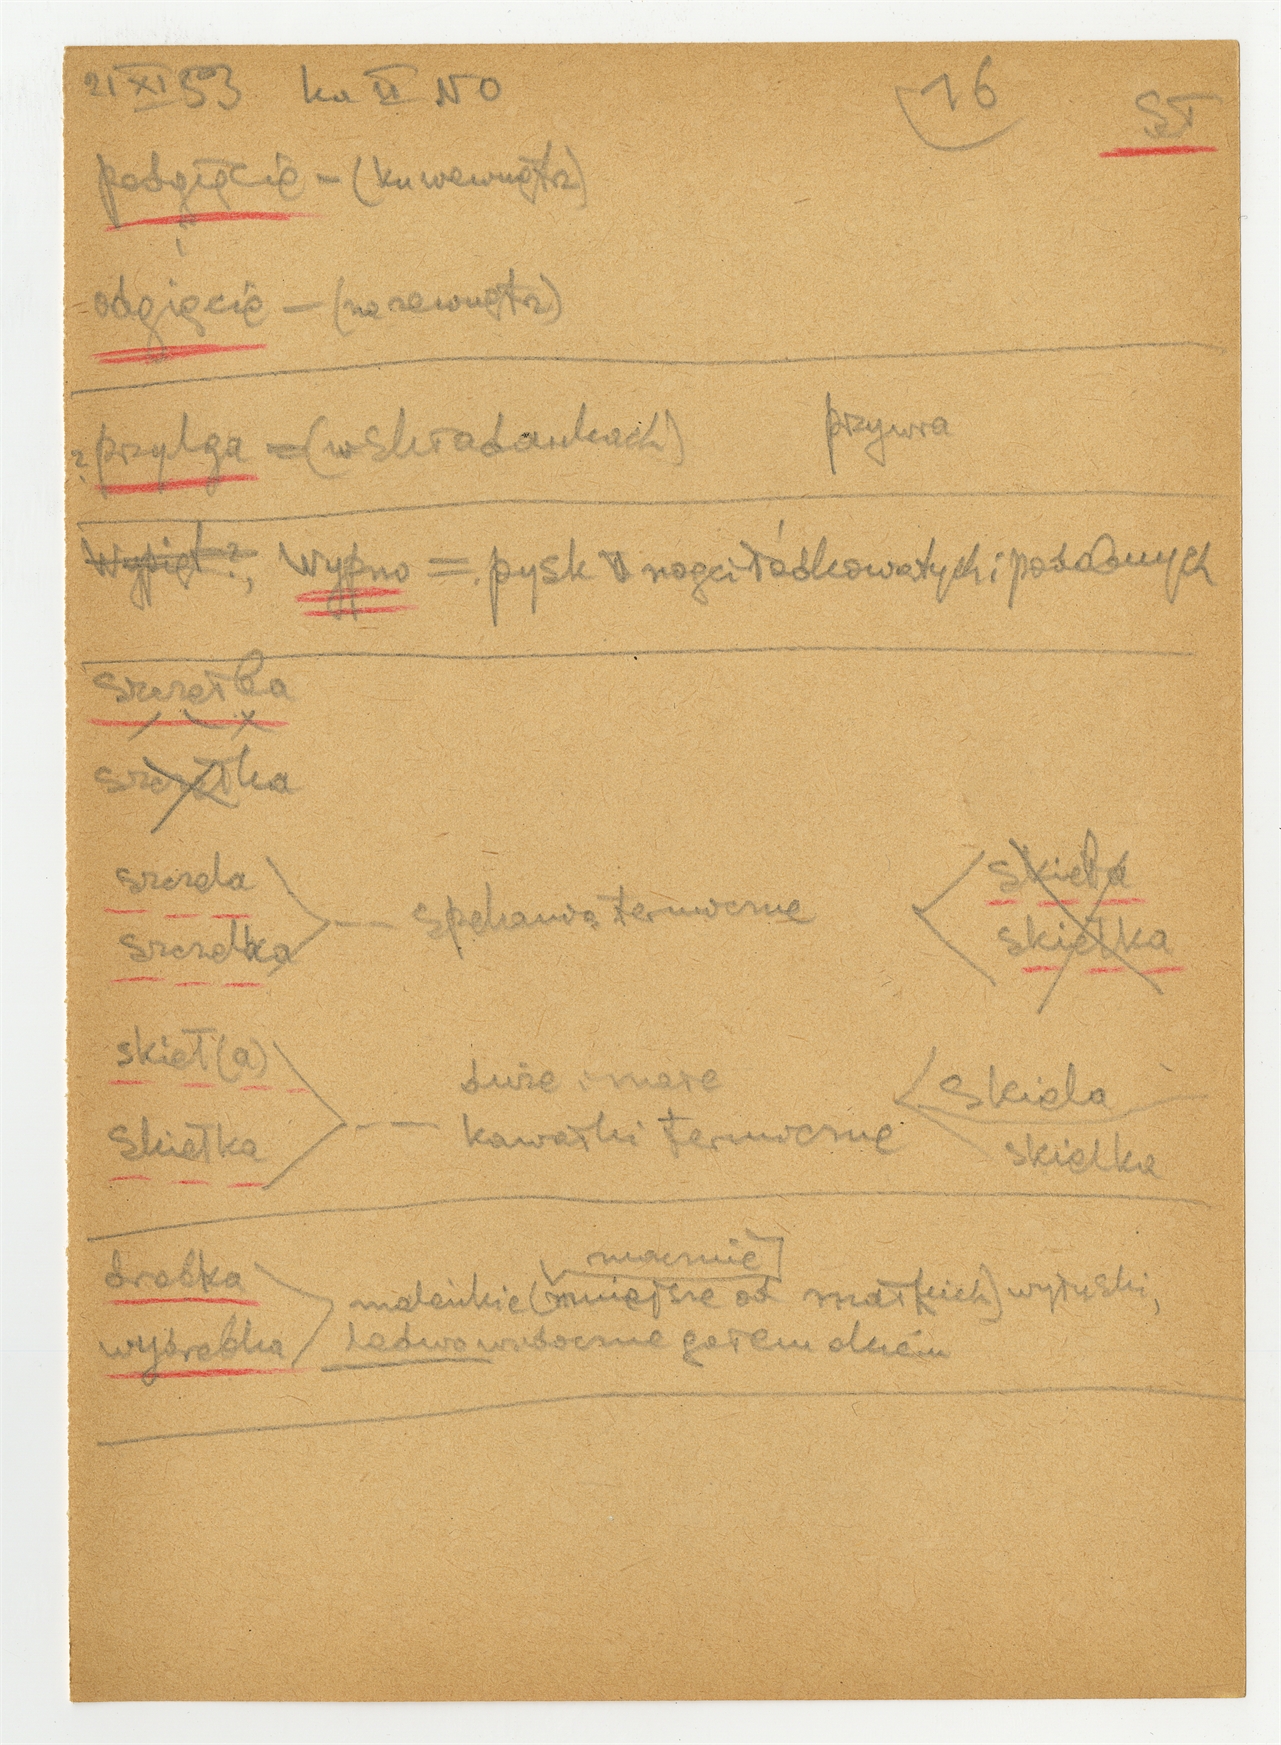 21 XI 53 ka II NO 16 SŁ
podgięcie – (ku wewnątrz)
i
odgięcie – (na zewnątrz)
? przylga = (w składankach) przywra
Wypięt?, Wypno = pysk nogci łódkowatych i podobnych
szczełba
szczełka
szczela
szczelka
spękania termiczne
skieła
skiełka
skieł(a)
skiełka
duże i małe
kawałki termiczne
skiela
skielka
drobka
wydrobka
znacznie
maleńkie (mniejsze od małych) wyłuski,
ledwo widoczne gołem okiem